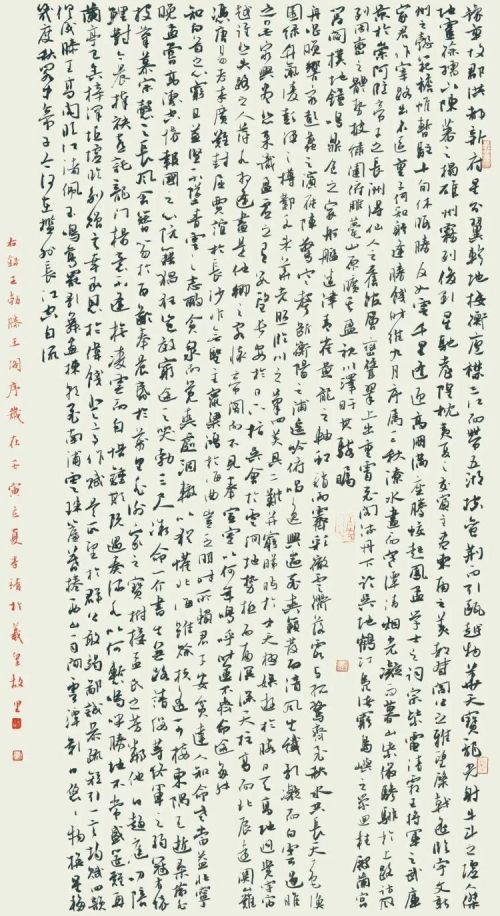 豫章故郡洪都新府星分翼軫地接衡廬襟三江而帶五湖控蠻荊而引甌越物華天寶龍光射牛斗之墟人傑
地靈徐孺下陳蕃之榻雄州霧列俊彩星馳臺隍枕夷夏之交賓主盡東南之美都督閻公之雅望棨戟遙臨宇文新
州之懿範襜帷暫駐十旬休暇勝友如雲千里逢迎高朋滿座騰蛟起鳳孟學士之詞宗紫電清霜王將軍之武庫
家君作宰路出名區童子何知躬逢勝餞時維九月序屬三秋潦水盡而寒潭清煙光凝而暮山紫儼驂騑於上路訪風
景於崇阿臨帝子之長洲得仙人之舊館層巒聳翠上出重霄飛閣流丹下臨無地鶴汀鳧渚窮島嶼之縈迴桂殿蘭宮
列岡巒之體勢披繡闥俯雕甍山原曠其盈視川澤盱其駭矚
閭閻撲地鐘鳴鼎食之家舸艦迷津青雀黃龍之軸虹銷雨霽彩徹雲衢落霞與孤鶩齊飛秋水共長天一色漁
舟唱晚響窮彭蠡之濱雁陣驚寒聲斷衡陽之浦遙吟俯唱逸興遄飛爽籟發而清風生纖歌凝而白雲遏睢
園綠竹氣凌彭澤之樽鄴水朱華光照臨川之筆四美具二難并窮睇眄於中天極娛遊於暇日天高地迥覺宇宙
之無窮興盡悲來識盈虛之有數望長安於日下指吳會於雲間地勢極而南溟深天柱高而北辰遠關山難
越誰悲失路之人萍水相逢盡是他鄉之客懷帝閽而不見奉宣室以何年嗚呼時運不齊命途多舛
馮唐易老李廣難封屈賈誼於長沙非無聖主竄梁鴻於海曲豈乏明時所賴君子安貧達人知命老當益壯寧
知白首之心窮且益堅不墜青雲之志酌貪泉而覺爽處涸轍以猶懽北海雖賒扶搖可接東隅已逝桑榆非
晚孟嘗高潔空懷報國之心阮籍猖狂豈效窮途之哭勃三尺微命一介書生無路請纓等終軍之弱冠有懷
投筆慕宗慤之長風舍簪笏於百齡奉晨昏於萬里非謝家之寶樹接孟氏之芳鄰他日趨庭叨陪
鯉對今晨捧袂喜託龍門楊意不逢撫凌雲而自惜鍾期既遇奏流水以何慚嗚呼勝地不常盛筵難再
蘭亭已矣梓澤丘墟臨別贈言幸承恩於偉餞登高作賦是所望於群公敢竭鄙誠恭疏短引一言均賦四韻
俱成滕王高閣臨江渚佩玉鳴鸞罷歌舞畫棟朝飛南浦雲珠簾暮捲西山雨閒雲潭影日悠悠物換星移
幾度秋閣中帝子今何在檻外長江空自流
右錄王勃滕王閣序歲在壬寅立夏李靖於羲皇故里